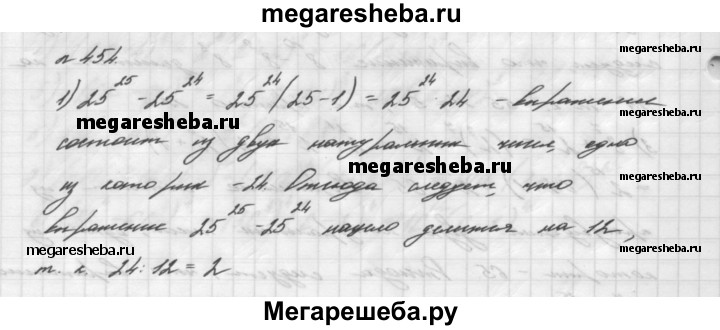 megaresheba.ru
№ 454.
megaresheba.ru
1) 25^25 - 25^24 = 25^24 (25-1) = 25^24 · 24 - выражение
megaresheba.ru
состоит из двух натуральных чисел, одно
megaresheba.ru
из которых - 24. Отсюда следует, что
выражение 25^25 - 25^24 нацело делится на 12,
megaresheba.ru
megaresheba.ru
т. к. 24 : 12 = 2
Мегарешеба.ру